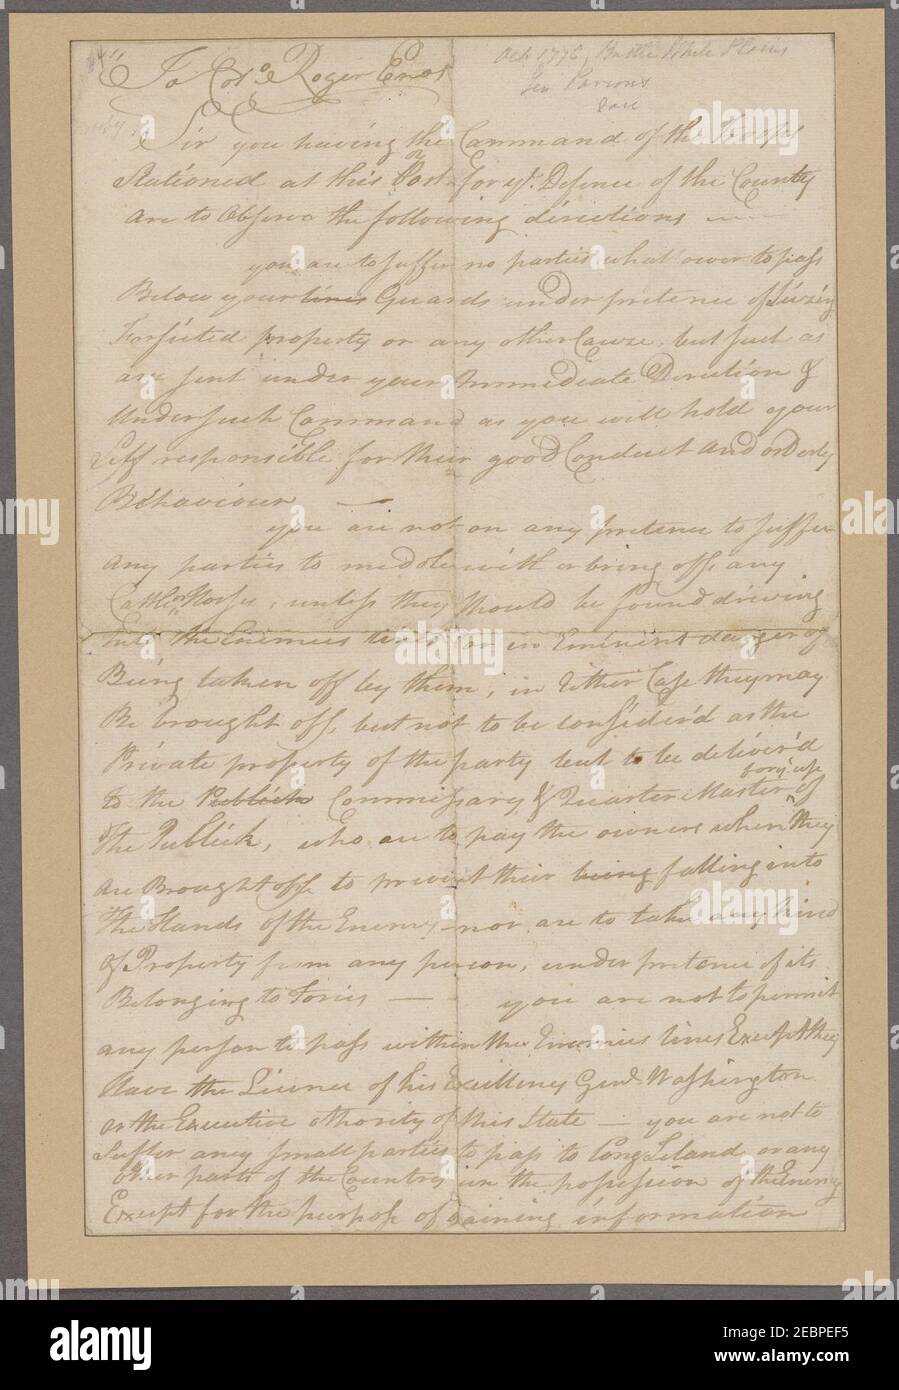 To Colo. Roger Enos
Oct 1776, Battle White Plains
Gen Parsons
Sir you having the Command of the Troops
Stationed at this Post or For ye. Defence of the County
are to Observe the following directions
you are to suffer no parties what ower to pass
Below your lines Guards under pretence of Siezing
Forfieted property or any other Cause, but such as
are sent under your Immediate Direction &
Under such Command as you will hold your
Self responsible for their good Conduct and orderly
Behaviour
you are not on any pretence to suffer
any parties to meddle with or bring off, any
Cattle or Horses, unless they Should be found driving
into the Enemies lines or in Eminent danger of
Being taken off by them, in Either Case they may
Be brought off, but not to be considerd as the
Private property of the party but to be deliver'd
to the Publick Commissary & Quarter Master for ye. use of
The Publick, who are to pay the owners when they
are Brought off to prevent their being falling into
The Hands of the Enemy nor are to take any kind
of Property from any person, under pretence of its
Belonging to Tories — you are not to permit
any person to pass within the Enemies lines Except they
Have the Licence of his Excellency Genl. Washington
or the Executive Athority of this State — you are not to
Suffer any small parties to pass to Long Island or any
other parts of the Country in the possession of the Enemy
Except for the purpose of gaining information
alamy
2EBPEF5
www.alamy.com